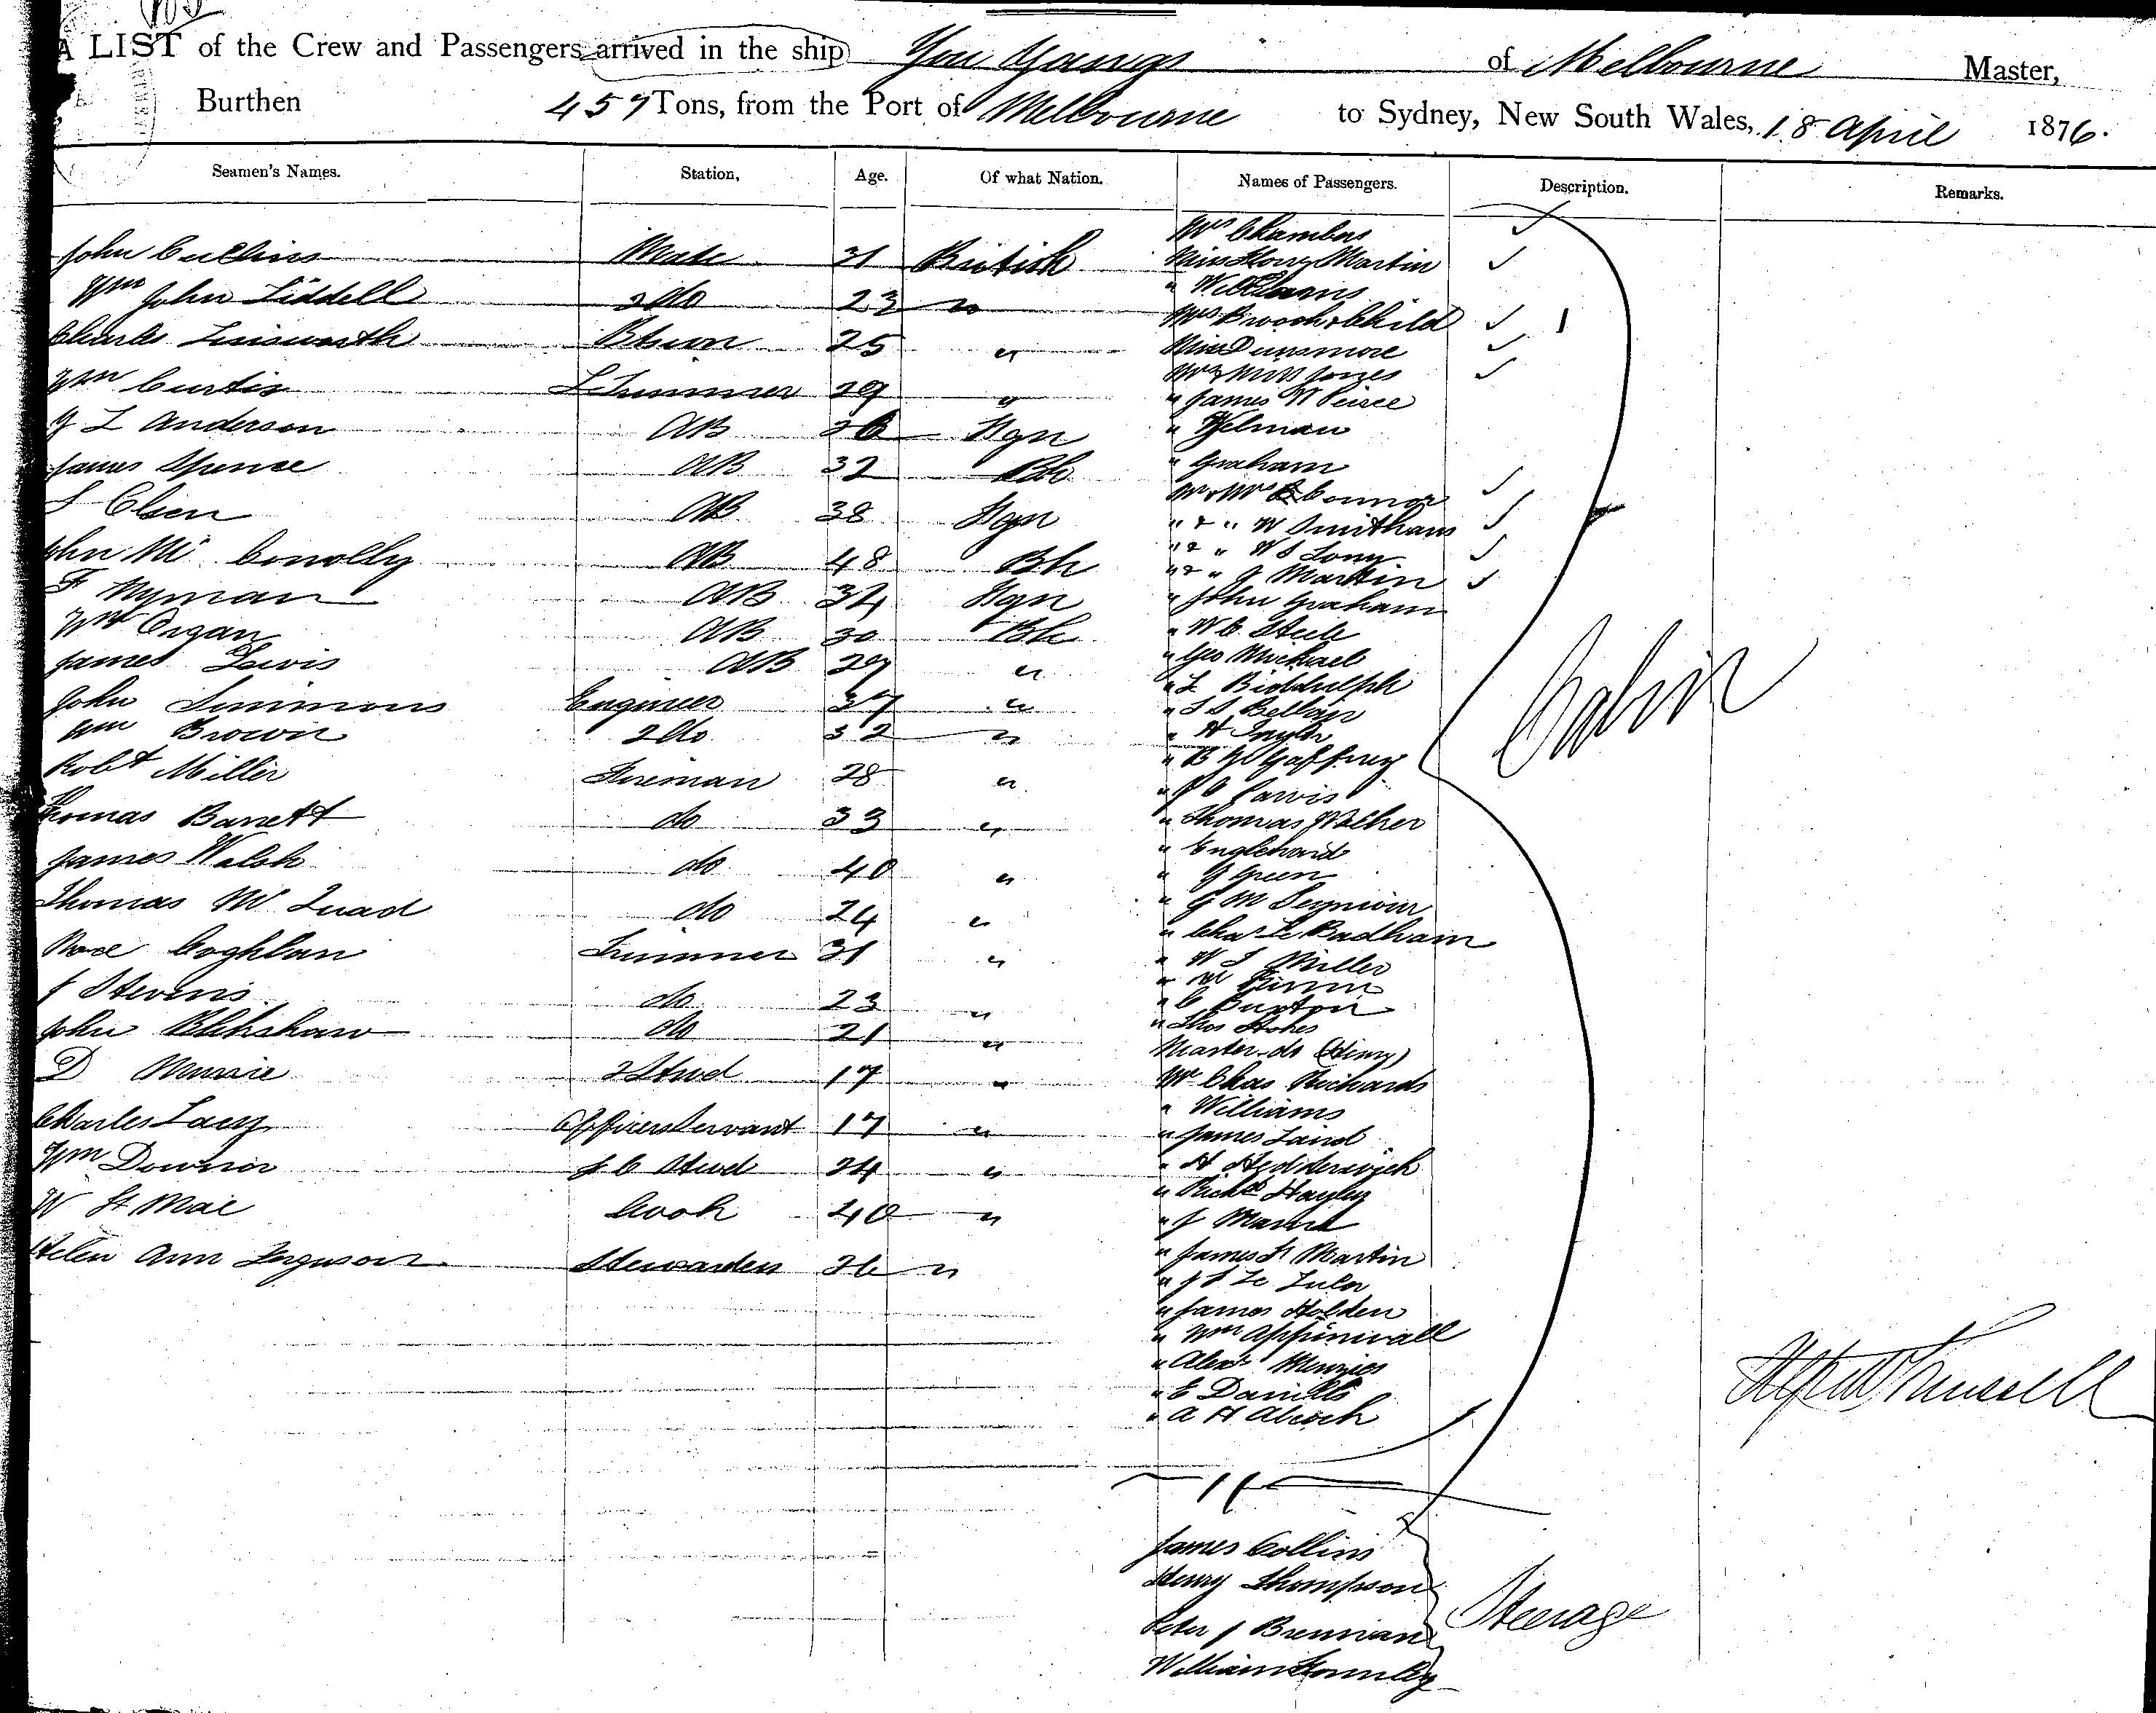 A LIST of the Crew and Passengers arrived in the ship You Yangs of Melbourne Master,
Burthen 457 Tons, from the Port of Melbourne to Sydney, New South Wales, 18 April 1876.
Seamen's Names. Station, Age. Of what Nation. Names of Passengers. Description. Remarks.
John Cullins Mate 31 British
Wm John Liddell 2 do 23 "
Charles Bsun 25 "
Wm Curtis L Trimmer 29 "
J L Anderson AB 26 Fgn
James Spence AB 32 Bh
S Olsen AB 38 Fgn
John Mc Conolly AB 48 Bh
F Nyman AB 34 Fgn
Wm Organ AB 30 Bh
James Lewis AB 29 "
John Simmons Engineer 37 "
Wm Brown 2 do 32 "
Robt Miller Fireman 28 "
Thomas Barrett do 33 "
James Walsh do 40 "
Thomas Mc Quad do 24 "
Coghlan Trimmer 31 "
J Stevens do 23 "
John do 21 "
D 2 Stwd 17 "
Charles Lacy Officers Servant 17 "
Wm Downor F C Stwd 24 "
W St Mac Cook 40 "
Helen Ann Ferguson Stewardess 36 "
Mrs Chambers
Miss Martin
" Williams
Mrs Brooch & Child 1
Miss Dunsmore
Mr & Miss Jones
" James N Peirce
"
" Graham
Mr & Mrs Connor
" & " W Smitham
" & " W S Long
" & " J Martin
" John Graham
" W C Steele
" Geo Michael
" L Biddulph
" S S
" H
" B Gaffney
" Jarvis
" Thomas Walker
" Englehard
" G Green
" G M
" Chas Le Badham
" W S Miller
" W
" C Buxton
" Thos Stokes
Master do (Henry)
Mr Chas Richards
" Williams
" James Laird
" H Hedderwick
" Richd Hayley
" J
" James H Martin
" J S Le
" James Holden
" Wm Appinwall
" Alexr Menzies
" E Daniells
" A H Alcock
Cabin
James Collins
Henry Thompson
Peter J Brennan
William
Steerage